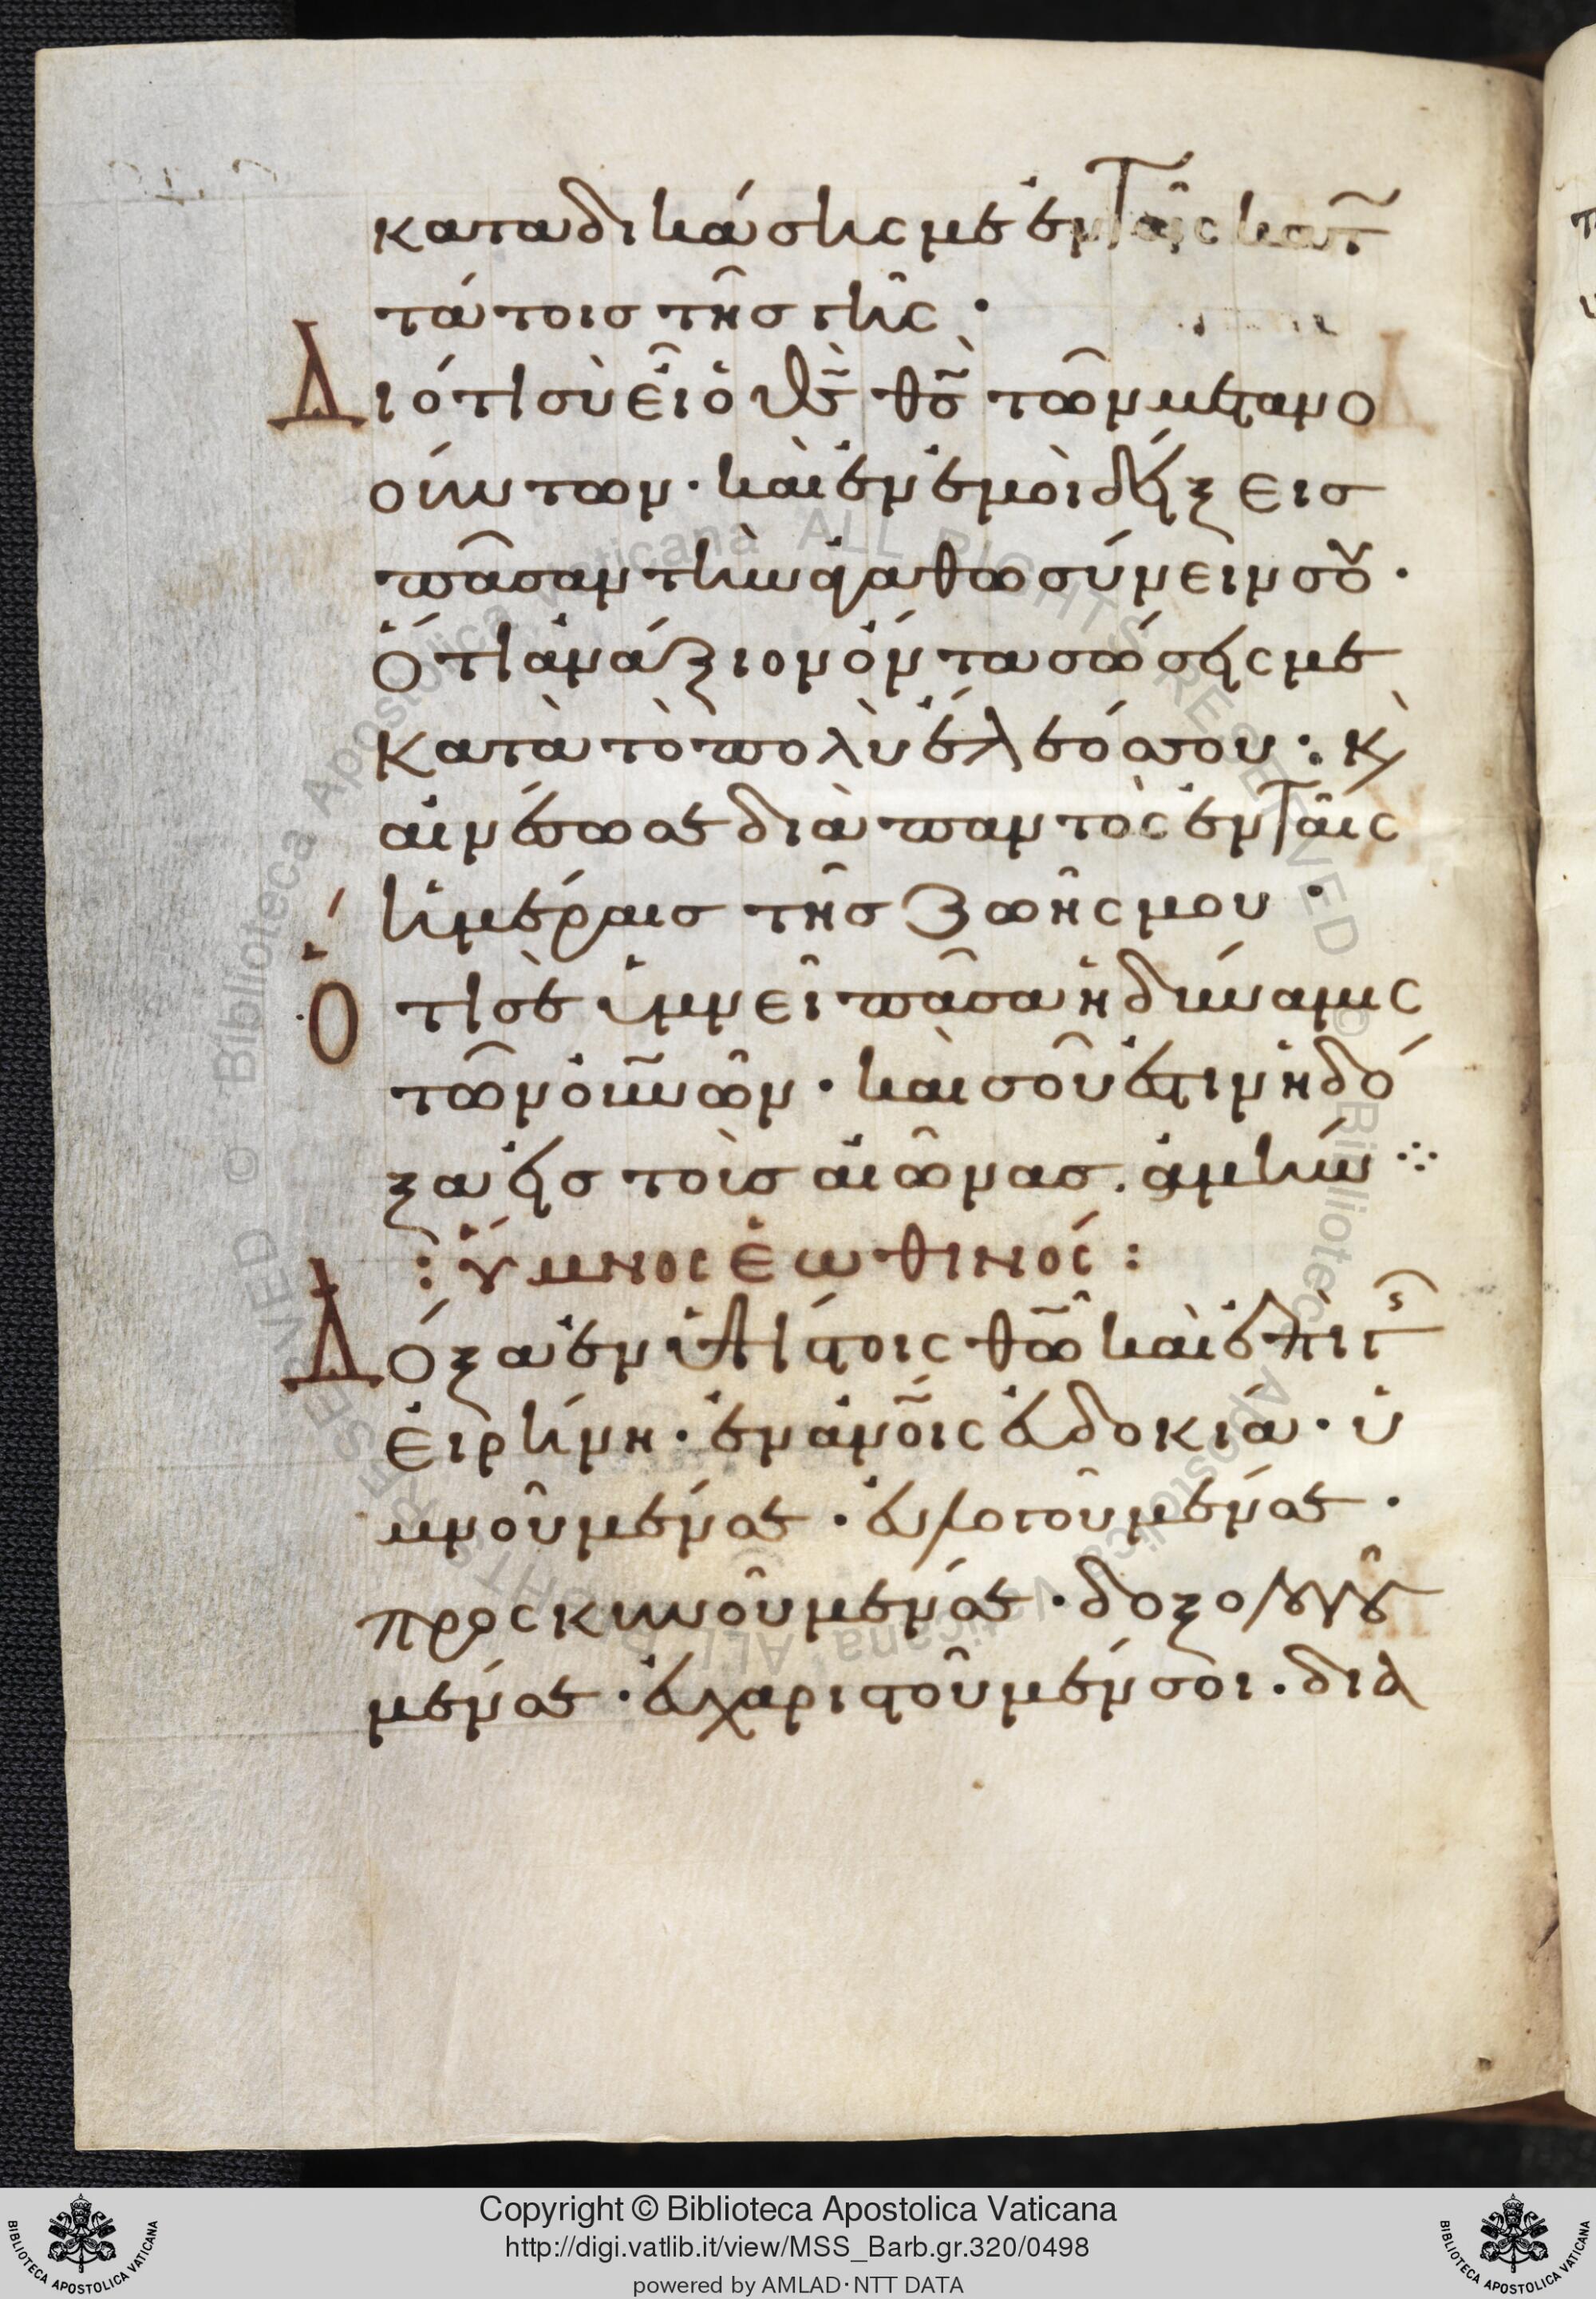 καταδικάσης με ἐν ταῖς κατ
τάτοις τῆς γῆς ·
Διότι σὺ εἶ ὁ θς̃ θς̃ τῶν μετανο
ούντων · καὶ ἐν ἐμοὶ δείξεις
πᾶσαν τὴν ἀγαθωσύνειν σου ·
Ὅτι ἀνάξιον ὄντα σώσεις με
κατὰ τὸ πολὺ ἔλεός σου : κ
αινέσω σε διὰ παντὸς ἐν ταῖς
ἡμέραις τῆς ζωῆς μου ·
Ὅτι σὲ ὑμνεῖ πᾶσα ἡ δύναμις
τῶν οὐνῶν · καὶ σοῦ ἐστιν ἡ δό
ξα εἰς τοὺς αἰῶνας . ἀμήν ·:·
: ὕμνος ἑωθινός :
Δόξα ἐν ὑψίστοις θῶ καὶ ἐπι γῆς
εἰρήνη · ἐν ἀνοις εὐδοκία · ὑ
μνοῦμέν σε · εὐλογοῦμέν σε ·
προσκυνοῦμέν σε · δοξολογοῦ
μέν σε · εὐχαριστοῦμέν σοι · διὰ
Copyright © Biblioteca Apostolica Vaticana
http://digi.vatlib.it/view/MSS_Barb.gr.320/0498
powered by AMLAD·NTT DATA
BIBLIOTECA APOSTOLICA VATICANA
BIBLIOTECA APOSTOLICA VATICANA